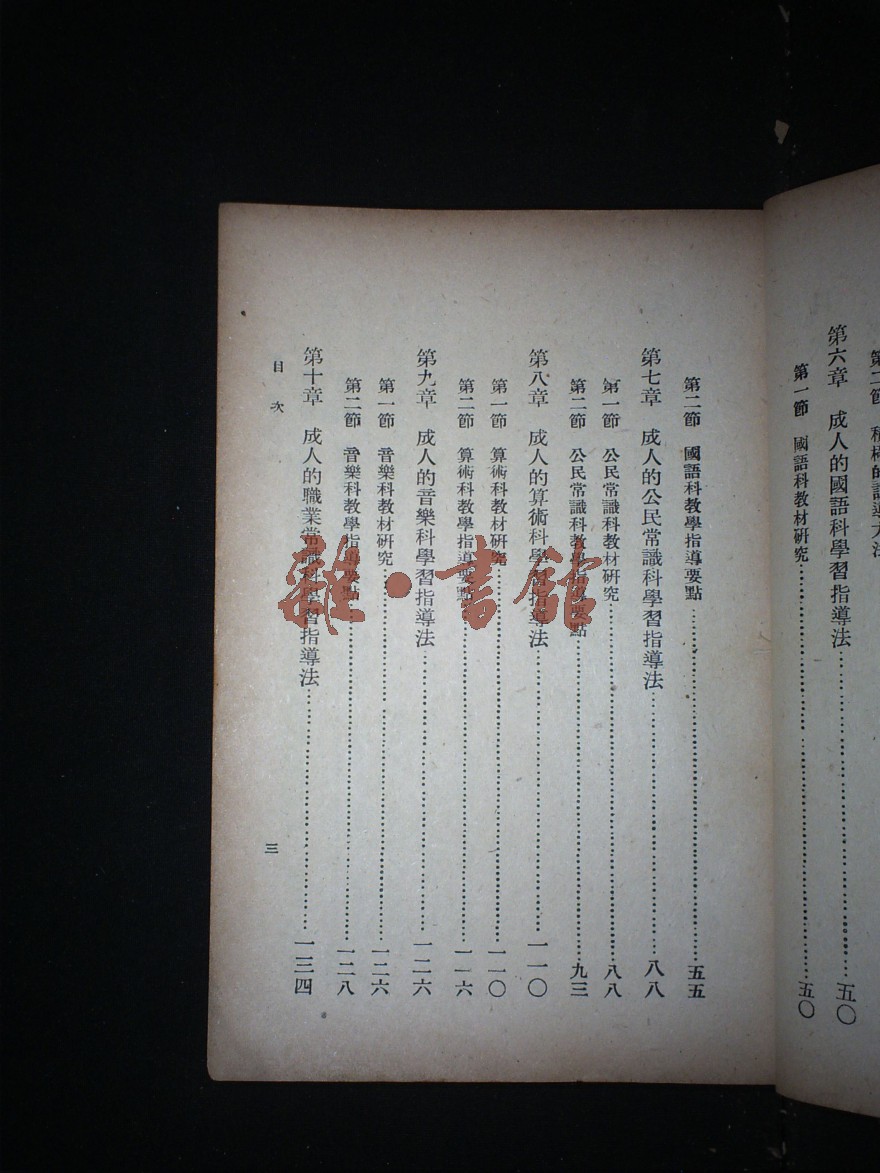 第六章 成人的國語科學習指導法……五〇
第一節 國語科教材研究……五〇
第二節 國語科教學指導要點……五五
第七章 成人的公民常識科學習指導法……八八
第一節 公民常識科教材研究……八八
第二節 公民常識科教學指導要點……九三
第八章 成人的算術科學習指導法……一一〇
第一節 算術科教材研究……一一〇
第二節 算術科教學指導要點……一一六
第九章 成人的音樂科學習指導法……一二六
第一節 音樂科教材研究……一二六
第二節 音樂科教學指導要點……一二八
第十章 成人的職業常識科學習指導法……一三四
目次
三
雜·書館